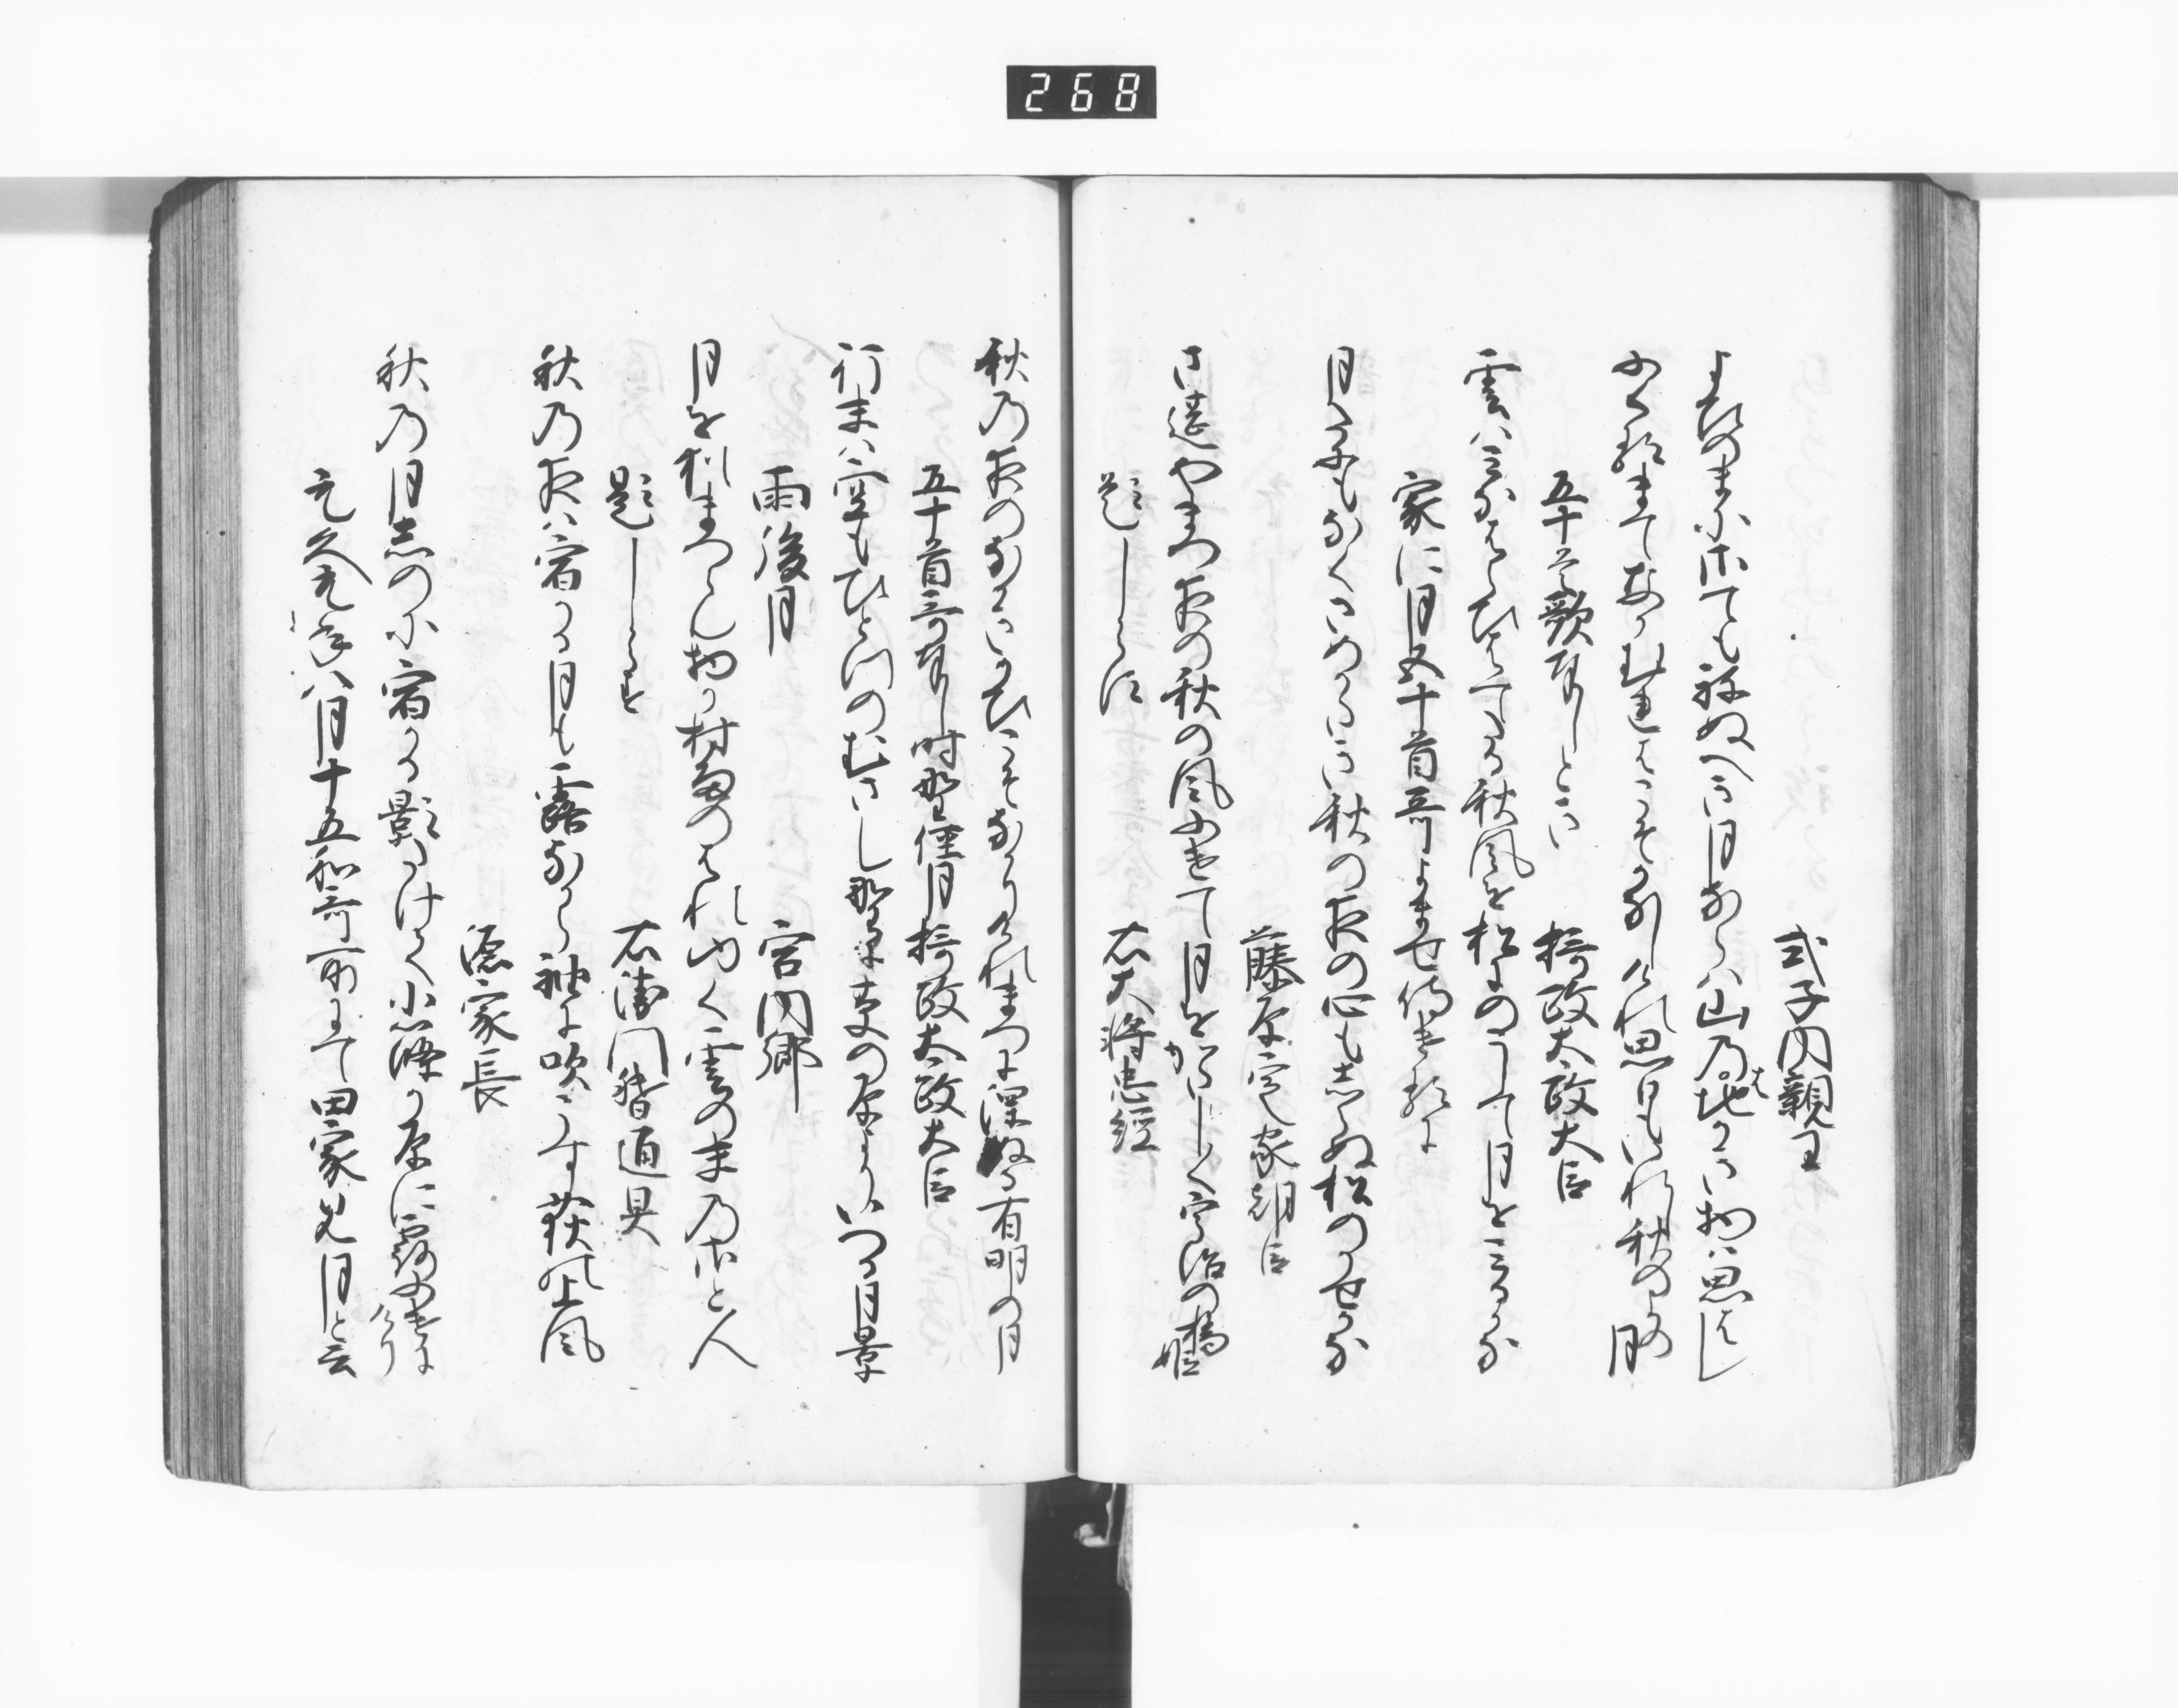 268
式子内親王
よひのまにさても祢ぬへき月ならは山乃はちかき物は思はし
ふくるまてなかむれはこそかなしけれ思ひもいれし秋のよの月
五十首歌奉りしとき 摂政太政大臣
雲はみなはらひはてたる秋風を松にのこして月をみるかな
家に月五十首哥よませ侍ける時
月たにもなくさめかたき秋の夜の心も志らぬ松のかせかな
藤原定家朝臣
さ莚やまつ夜の秋の風ふけて月をかたしく宇治の橋姫
題しらす 右大将忠経
秋乃夜のなかきかひこそなかりけれまつに深ぬる有明の月
五十首哥奉りし時野径月 摂政太政大臣
行末は空もひとつのむさし野に草の原よりいつる月景
雨後月 宮内卿
月を猶まつらん物か村雨のはれゆく雲の末乃さと人
題しらす 右衛門督通具
秋乃夜は宿かる月も露なから袖に吹こす荻の上風
源家長
秋乃月志のに宿かる影たけて小篠か原に露ふけにけり
元久元年八月十五夜和哥所にて田家見月と云